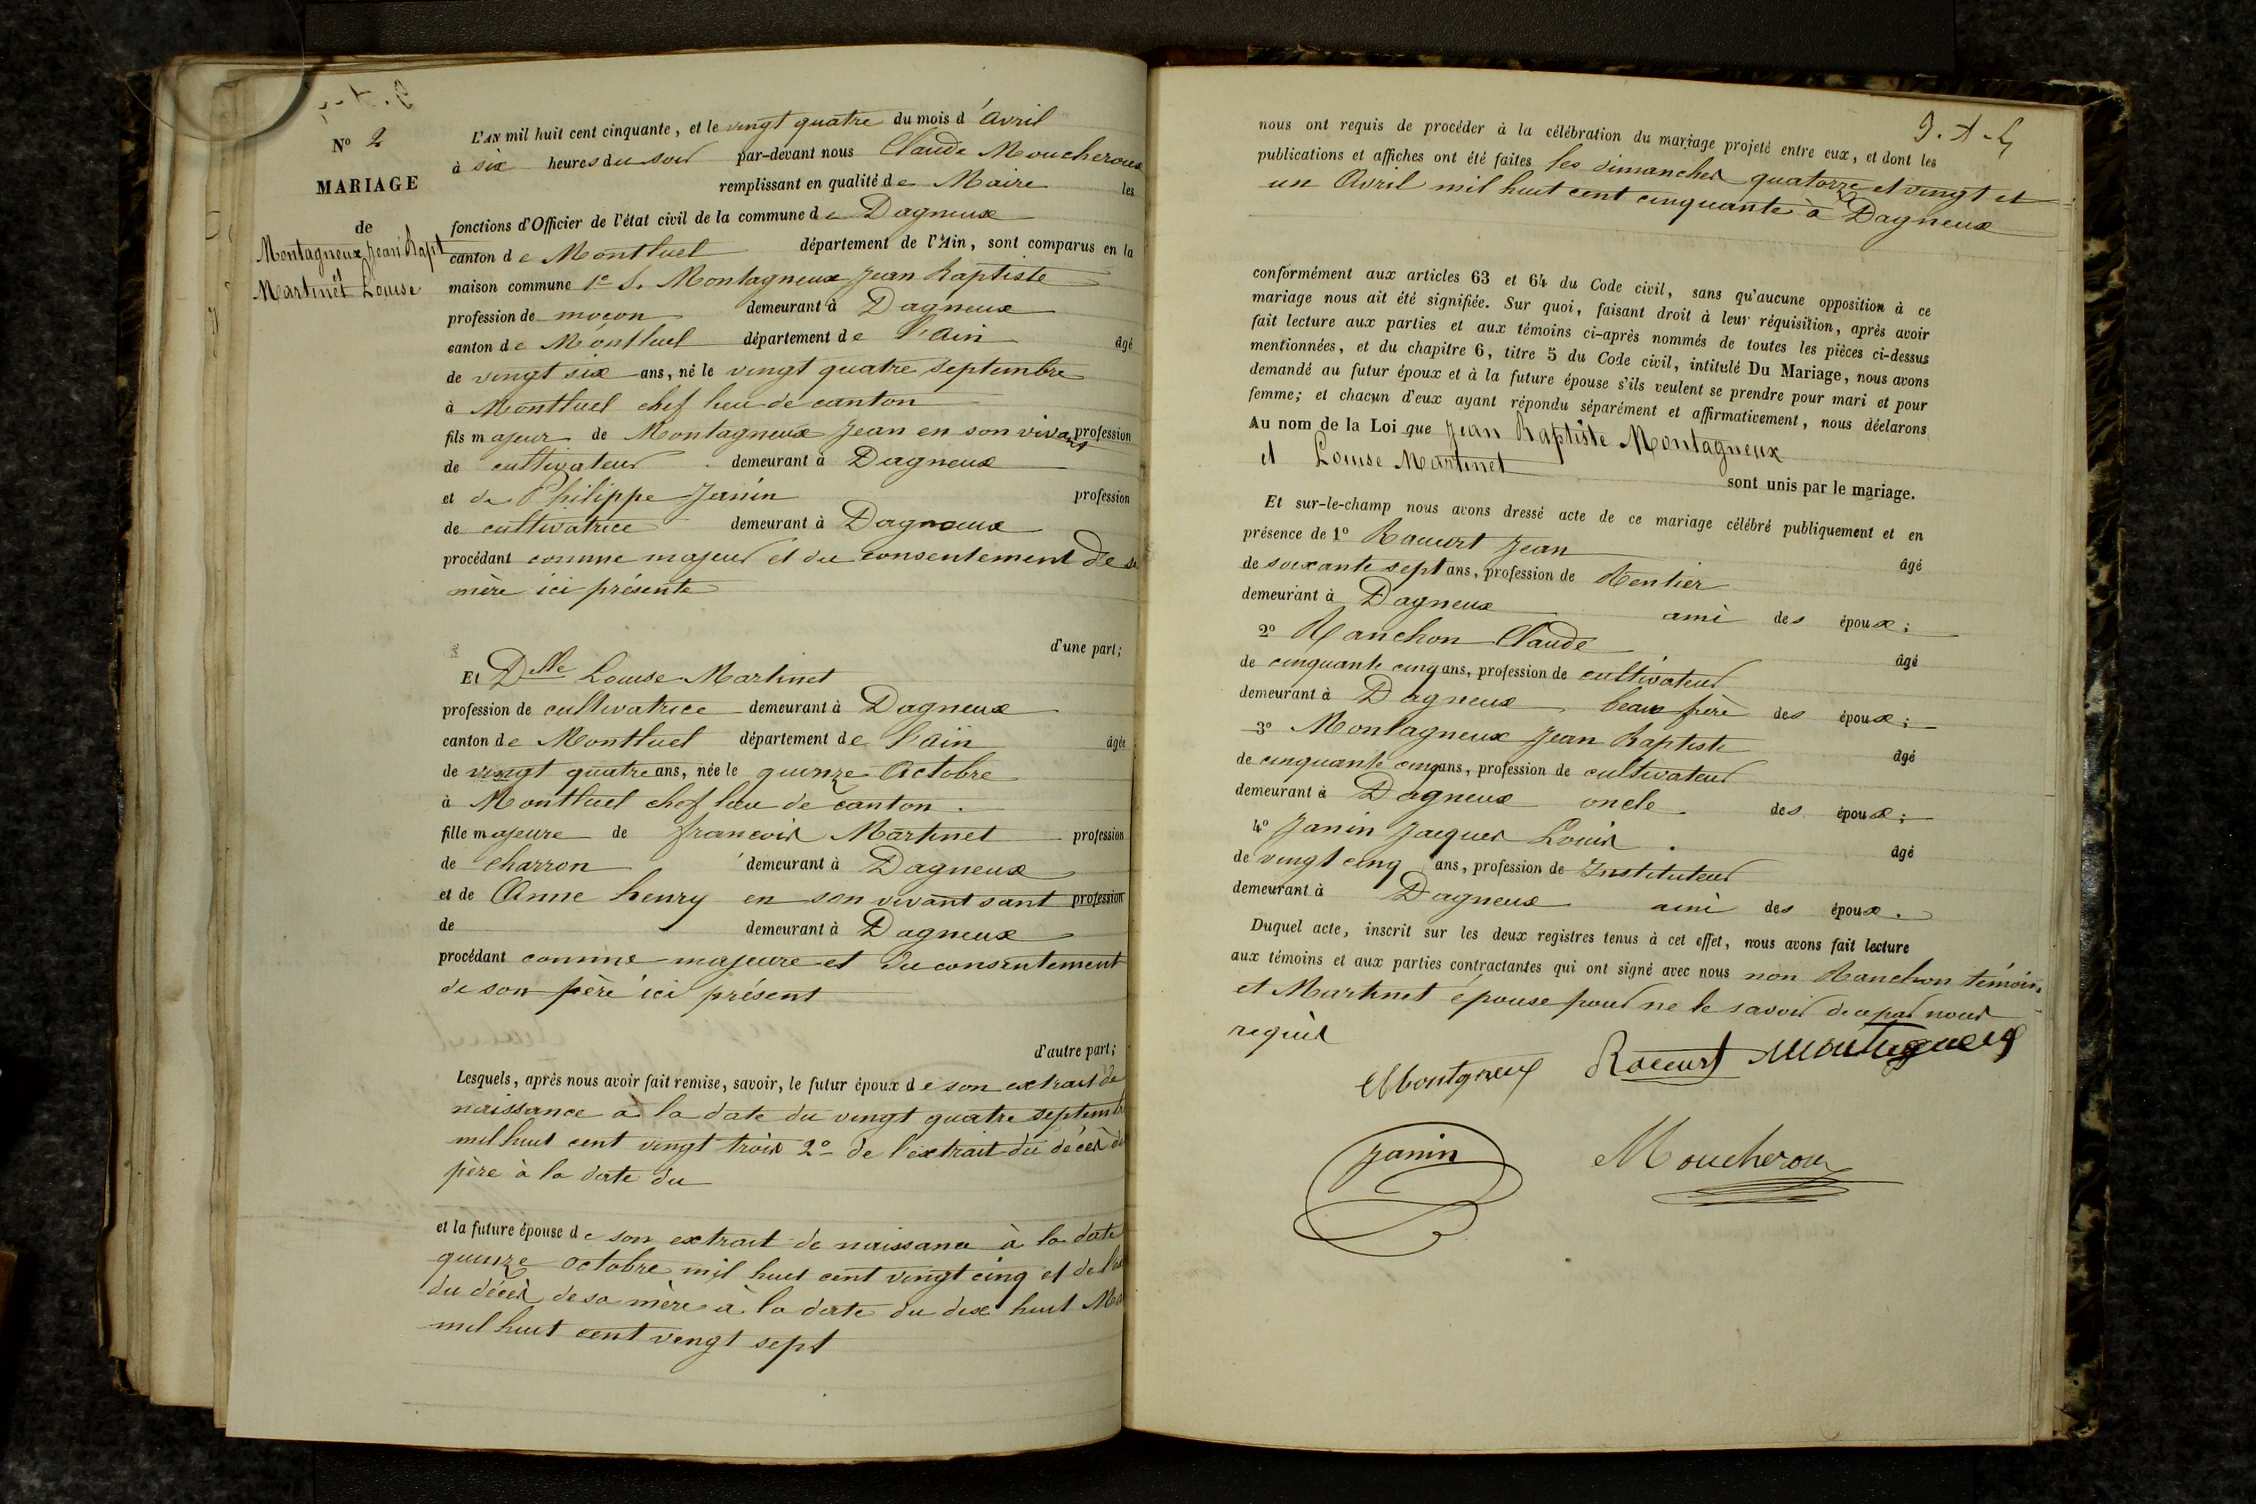 N° 2
MARIAGE
de
Montagneux Jean Bapt
Martinet Louise
L'AN mil huit cent cinquante, et le vingt quatre du mois d'Avril
à six heures du soir par-devant nous Claude Moucheroux
remplissant en qualité de Maire les
fonctions d'Officier de l'état civil de la commune de Dagneux
canton de Montluel département de l'Ain, sont comparus en la
maison commune 1° S. Montagneux Jean Baptiste
profession de maçon demeurant à Dagneux
canton de Montluel département de l'ain âgé
de vingt six ans, né le vingt quatre Septembre
à Montluel chef lieu de canton
fils majeur de Montagneux Jean en son vivant profession
de cultivateur demeurant à Dagneux
et de Philippe Janin profession
de cultivatrice demeurant à Dagneux
procédant comme majeur et du consentement de sa
mère ici présente
d'une part;
Et Dlle Louise Martinet
profession de cultivatrice demeurant à Dagneux
canton de Montluel département de l'ain âgée
de vingt quatre ans, née le quinze Octobre
à Montluel chef lieu de canton.
fille majeure de francois Martinet profession
de charron demeurant à Dagneux
et de Anne henry en son vivant sant profession
de demeurant à Dagneux
procédant comme majeure et du consentement
de son père ici présent
d'autre part;
Lesquels, après nous avoir fait remise, savoir, le futur époux de son extrait de
naissance à la date du vingt quatre septembre
mil huit cent vingt trois 2° de l'extrait du décès de
père à la date du
et la future épouse de son extrait de naissance à la date
quinze octobre mil huit cent vingt cinq et de l'ex
du décès de sa mère à la date du dix huit Ma
mil huit cent vingt sept
nous ont requis de procéder à la célébration du mariage projeté entre eux, et dont les
publications et affiches ont été faites les dimanches quatorze et vingt et
un Avril mil huit cent cinquante à Dagneux
conformément aux articles 63 et 64 du Code civil, sans qu'aucune opposition à ce
mariage nous ait été signifiée. Sur quoi, faisant droit à leur réquisition, après avoir
fait lecture aux parties et aux témoins ci-après nommés de toutes les pièces ci-dessus
mentionnées, et du chapitre 6, titre 5 du Code civil, intitulé Du Mariage, nous avons
demandé au futur époux et à la future épouse s'ils veulent se prendre pour mari et pour
femme; et chacun d'eux ayant répondu séparément et affirmativement, nous déclarons
Au nom de la Loi que Jean Baptiste Montagneux
et Louise Martinet
sont unis par le mariage.
Et sur-le-champ nous avons dressé acte de ce mariage célébré publiquement et en
présence de 1° Racurt Jean âgé
de soixante sept ans, profession de Rentier
demeurant à Dagneux ami des époux;
2° Ranchon Claude âgé
de cinquante cinq ans, profession de cultivateur
demeurant à Dagneux beau frère des époux;
3° Montagneux Jean Baptiste âgé
de cinquante cinq ans, profession de cultivateur
demeurant à Dagneux oncle des époux;
4° Janin Jacques Louis. âgé
de vingt cinq ans, profession de Instituteur
demeurant à Dagneux ami des époux.
Duquel acte, inscrit sur les deux registres tenus à cet effet, nous avons fait lecture
aux témoins et aux parties contractantes qui ont signé avec nous non Ranchon témoin,
et Martinet épouse pour ne le savoir de apar nous
requis
Montgneux Racurt Montagneux
Janin Moucheroux